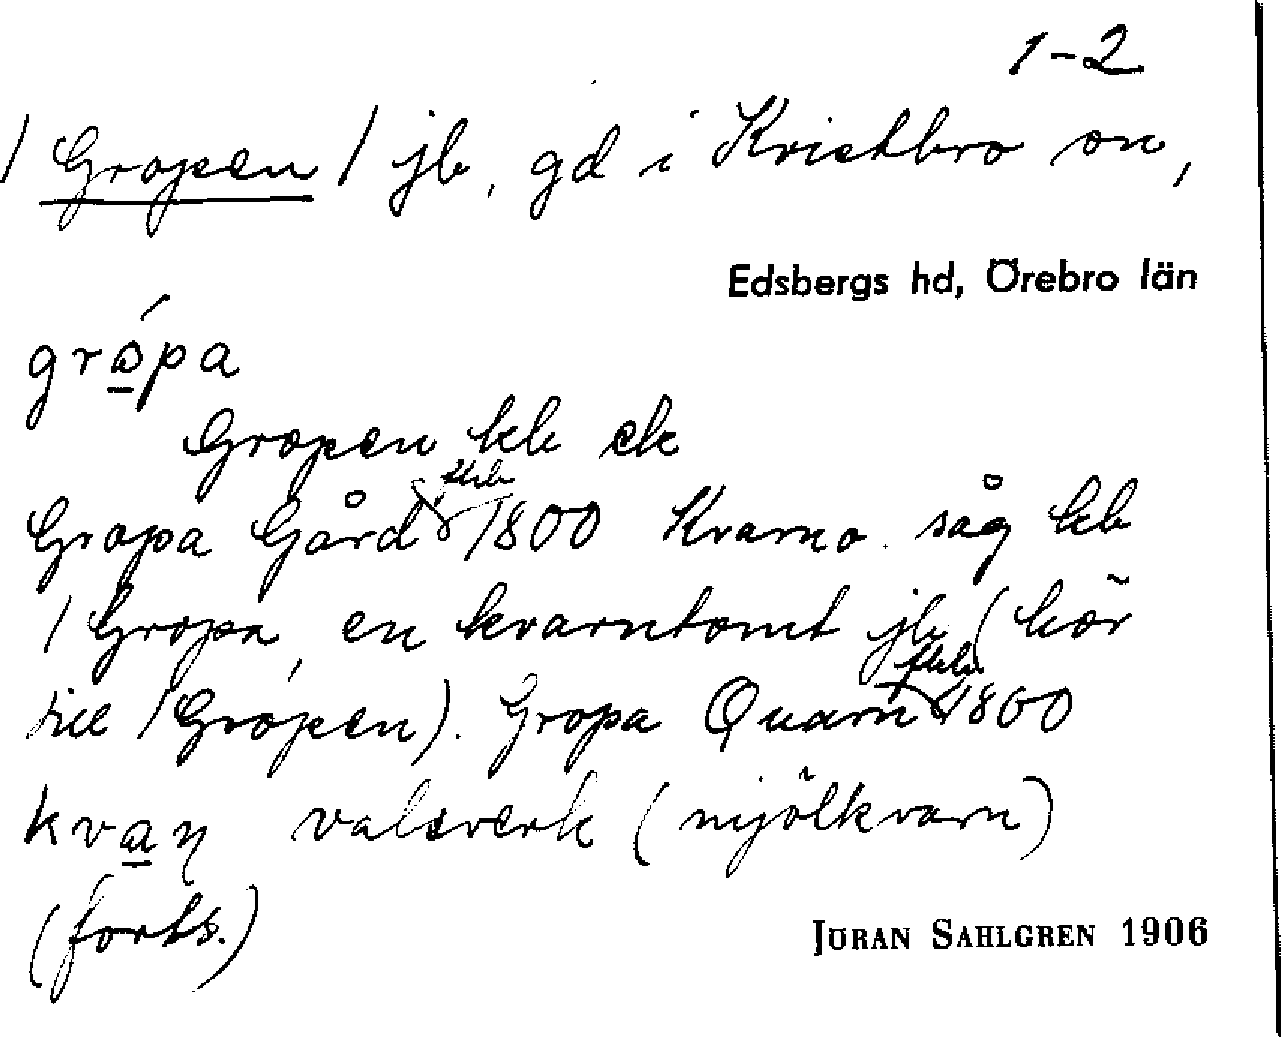 1-2
/ Gropen / jb, gd i Kvistbro sn,
Edsbergs hd, Örebro län
grópa
Gropen kb ek
Gropa Gård 1800 Kvarn o. såg kb
/ Gropa, en kvarntomt jb (hör
till / Gropen). Gropa Quarn 1800
kvaɳ valsverk (mjölkvarn)
(forts.)
JÖRAN SAHLGREN 1906